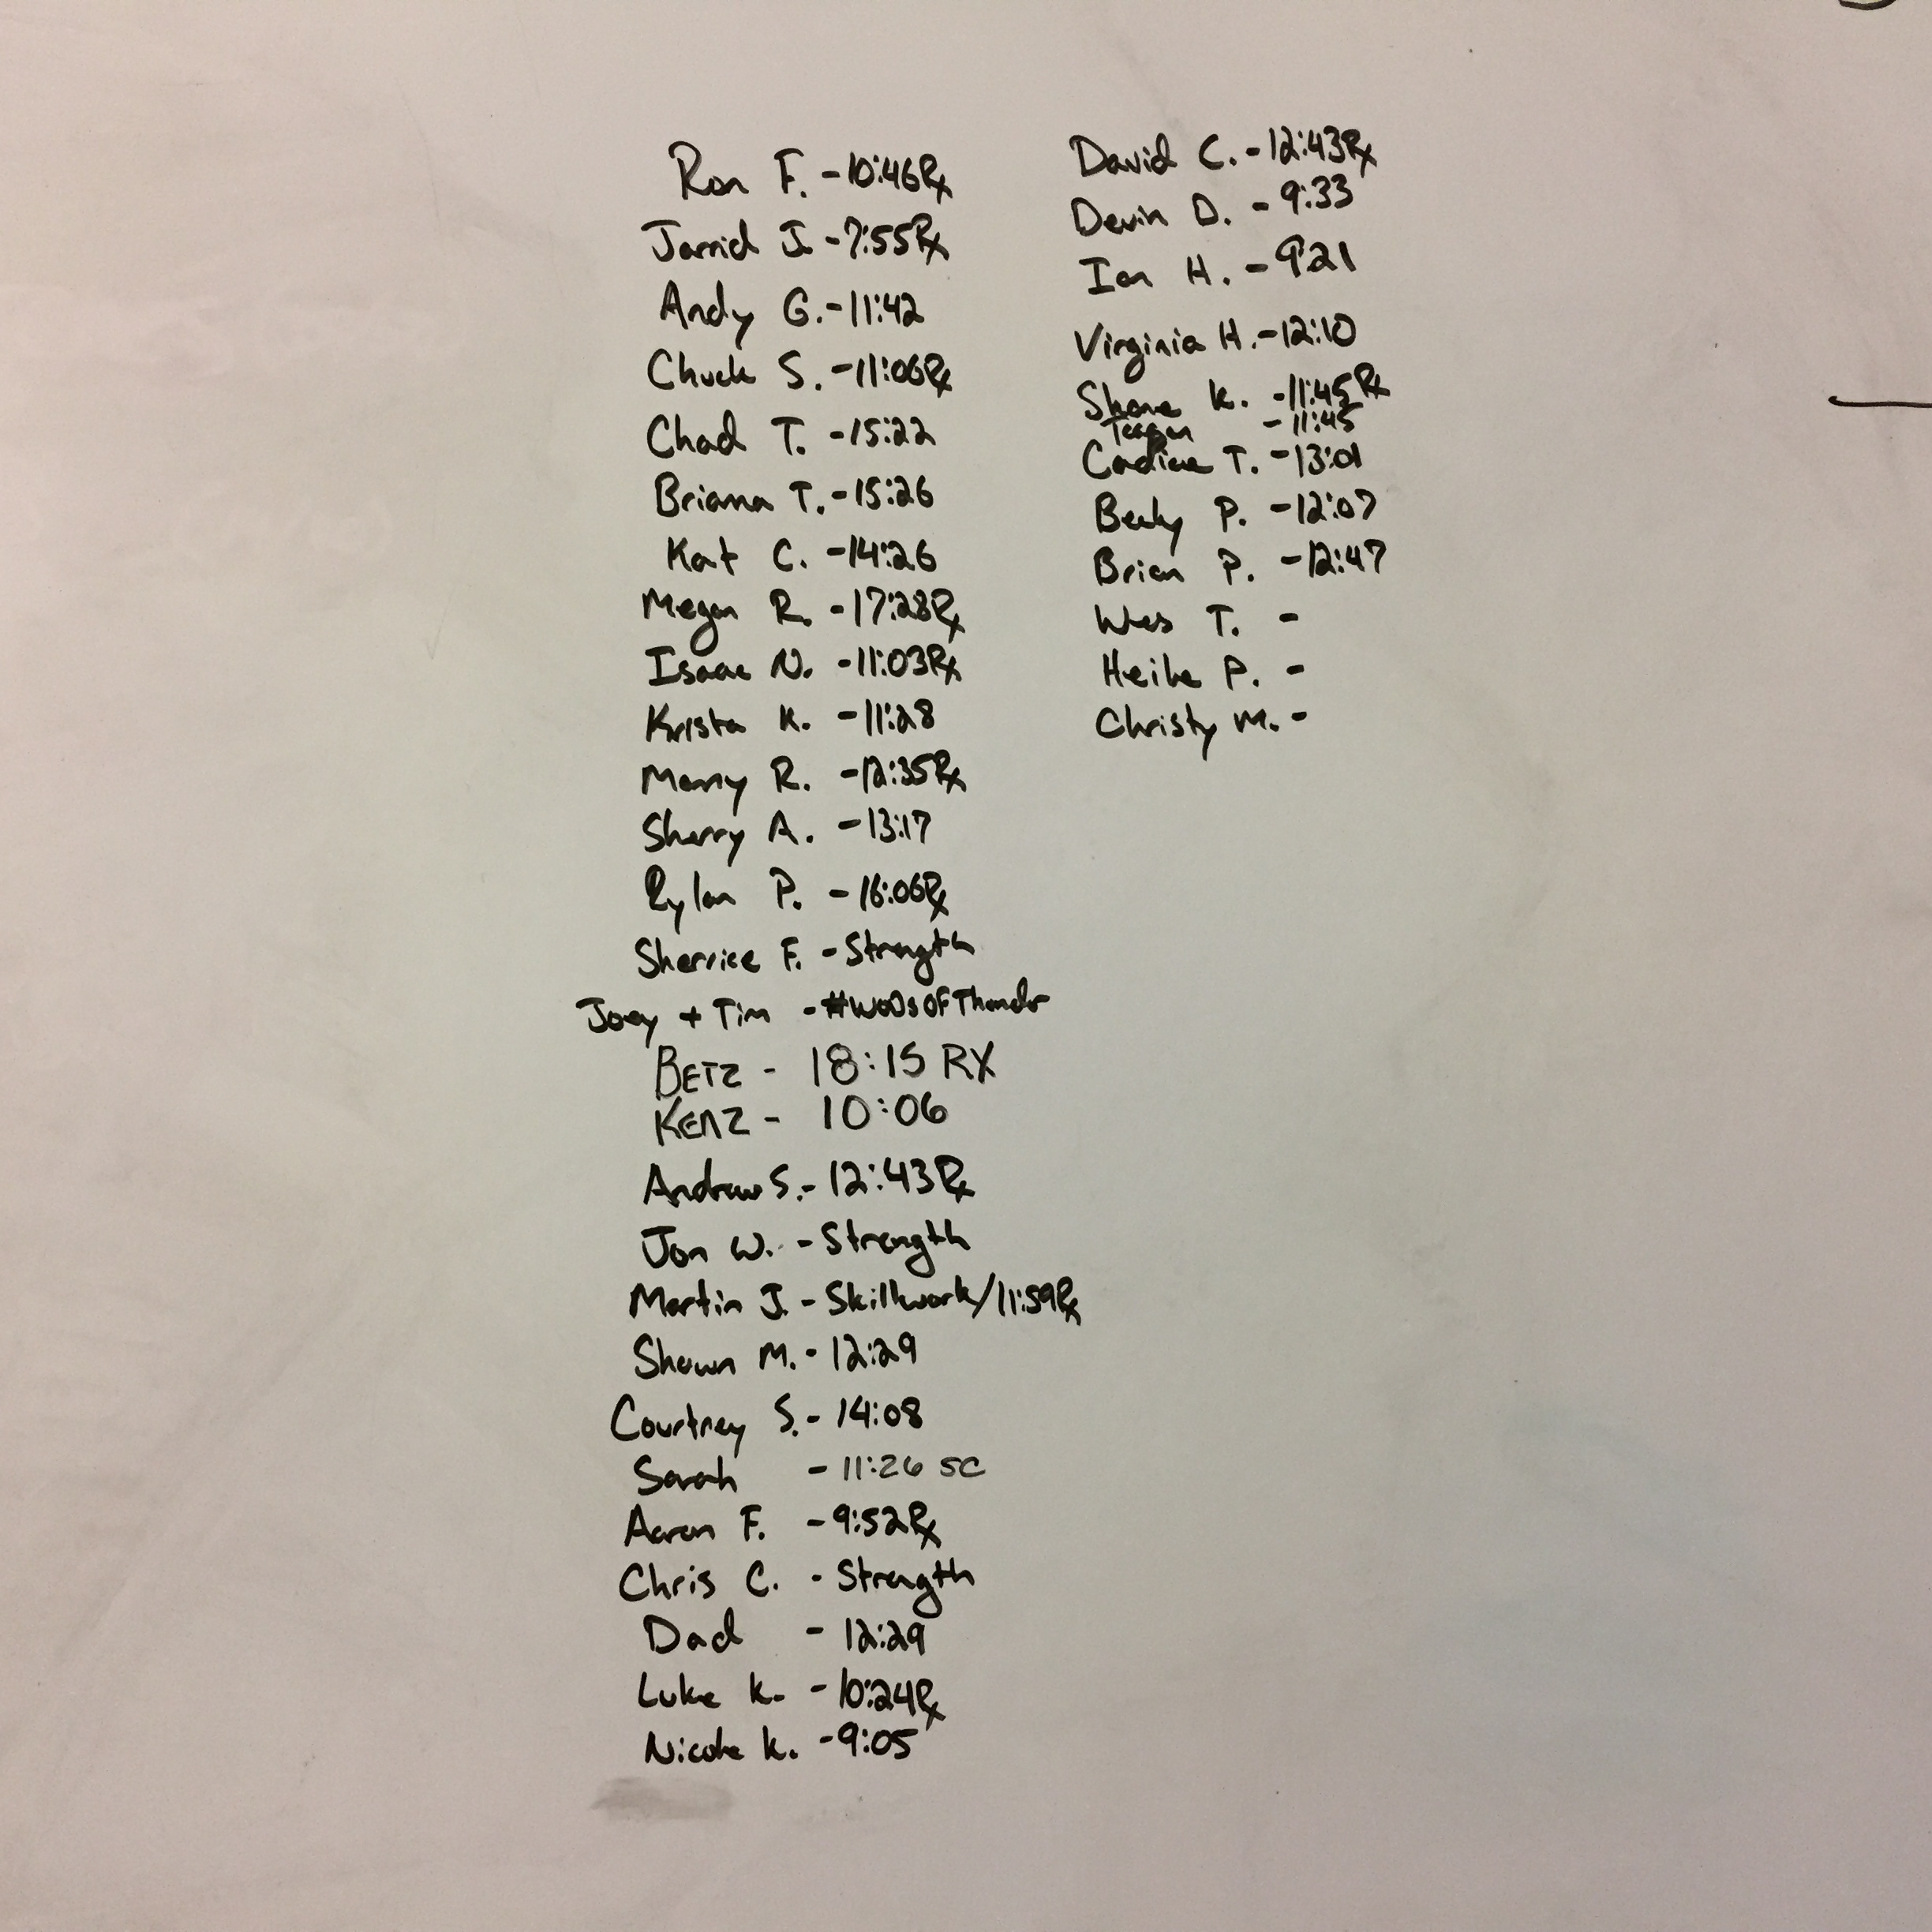 Ron F. - 10:46 Rx
Jarrid J. - 7:55 Rx
Andy G. - 11:42
Chuck S. - 11:06 Rx
Chad T. - 15:22
Briana T. - 15:26
Kat C. - 14:26
Megan R. - 17:28 Rx
Isaac N. - 11:03 Rx
Krista K. - 11:28
Manny R. - 12:35 Rx
Sherry A. - 13:17
Rylan P. - 16:06 Rx
Sherrice F. - Strength
Joey + Tim - #WODsOfThunder
BETZ - 18:15 RX
KENZ - 10:06
Andrew S. - 12:43 Rx
Jon W. - Strength
Martin J. - Skillwork/11:59 Rx
Shawn M. - 12:29
Courtney S. - 14:08
Sarah - 11:26 SC
Aaron F. - 9:52 Rx
Chris C. - Strength
Dad - 12:29
Luke K. - 10:24 Rx
Nicole K. - 9:05
David C. - 12:43 Rx
Devin D. - 9:33
Ian H. - 9:21
Virginia H. - 12:10
Shane K. - 11:45 Rx
Teagan - 11:45
T. - 13:01
Becky P. - 12:07
Brian P. - 12:47
Wes T. -
Heike P. -
Christy M. -